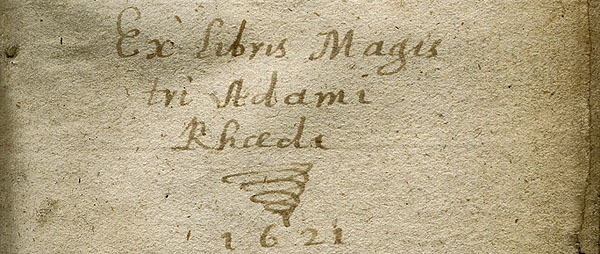 Ex libris Magis
tri Adami
Rhædi
1621